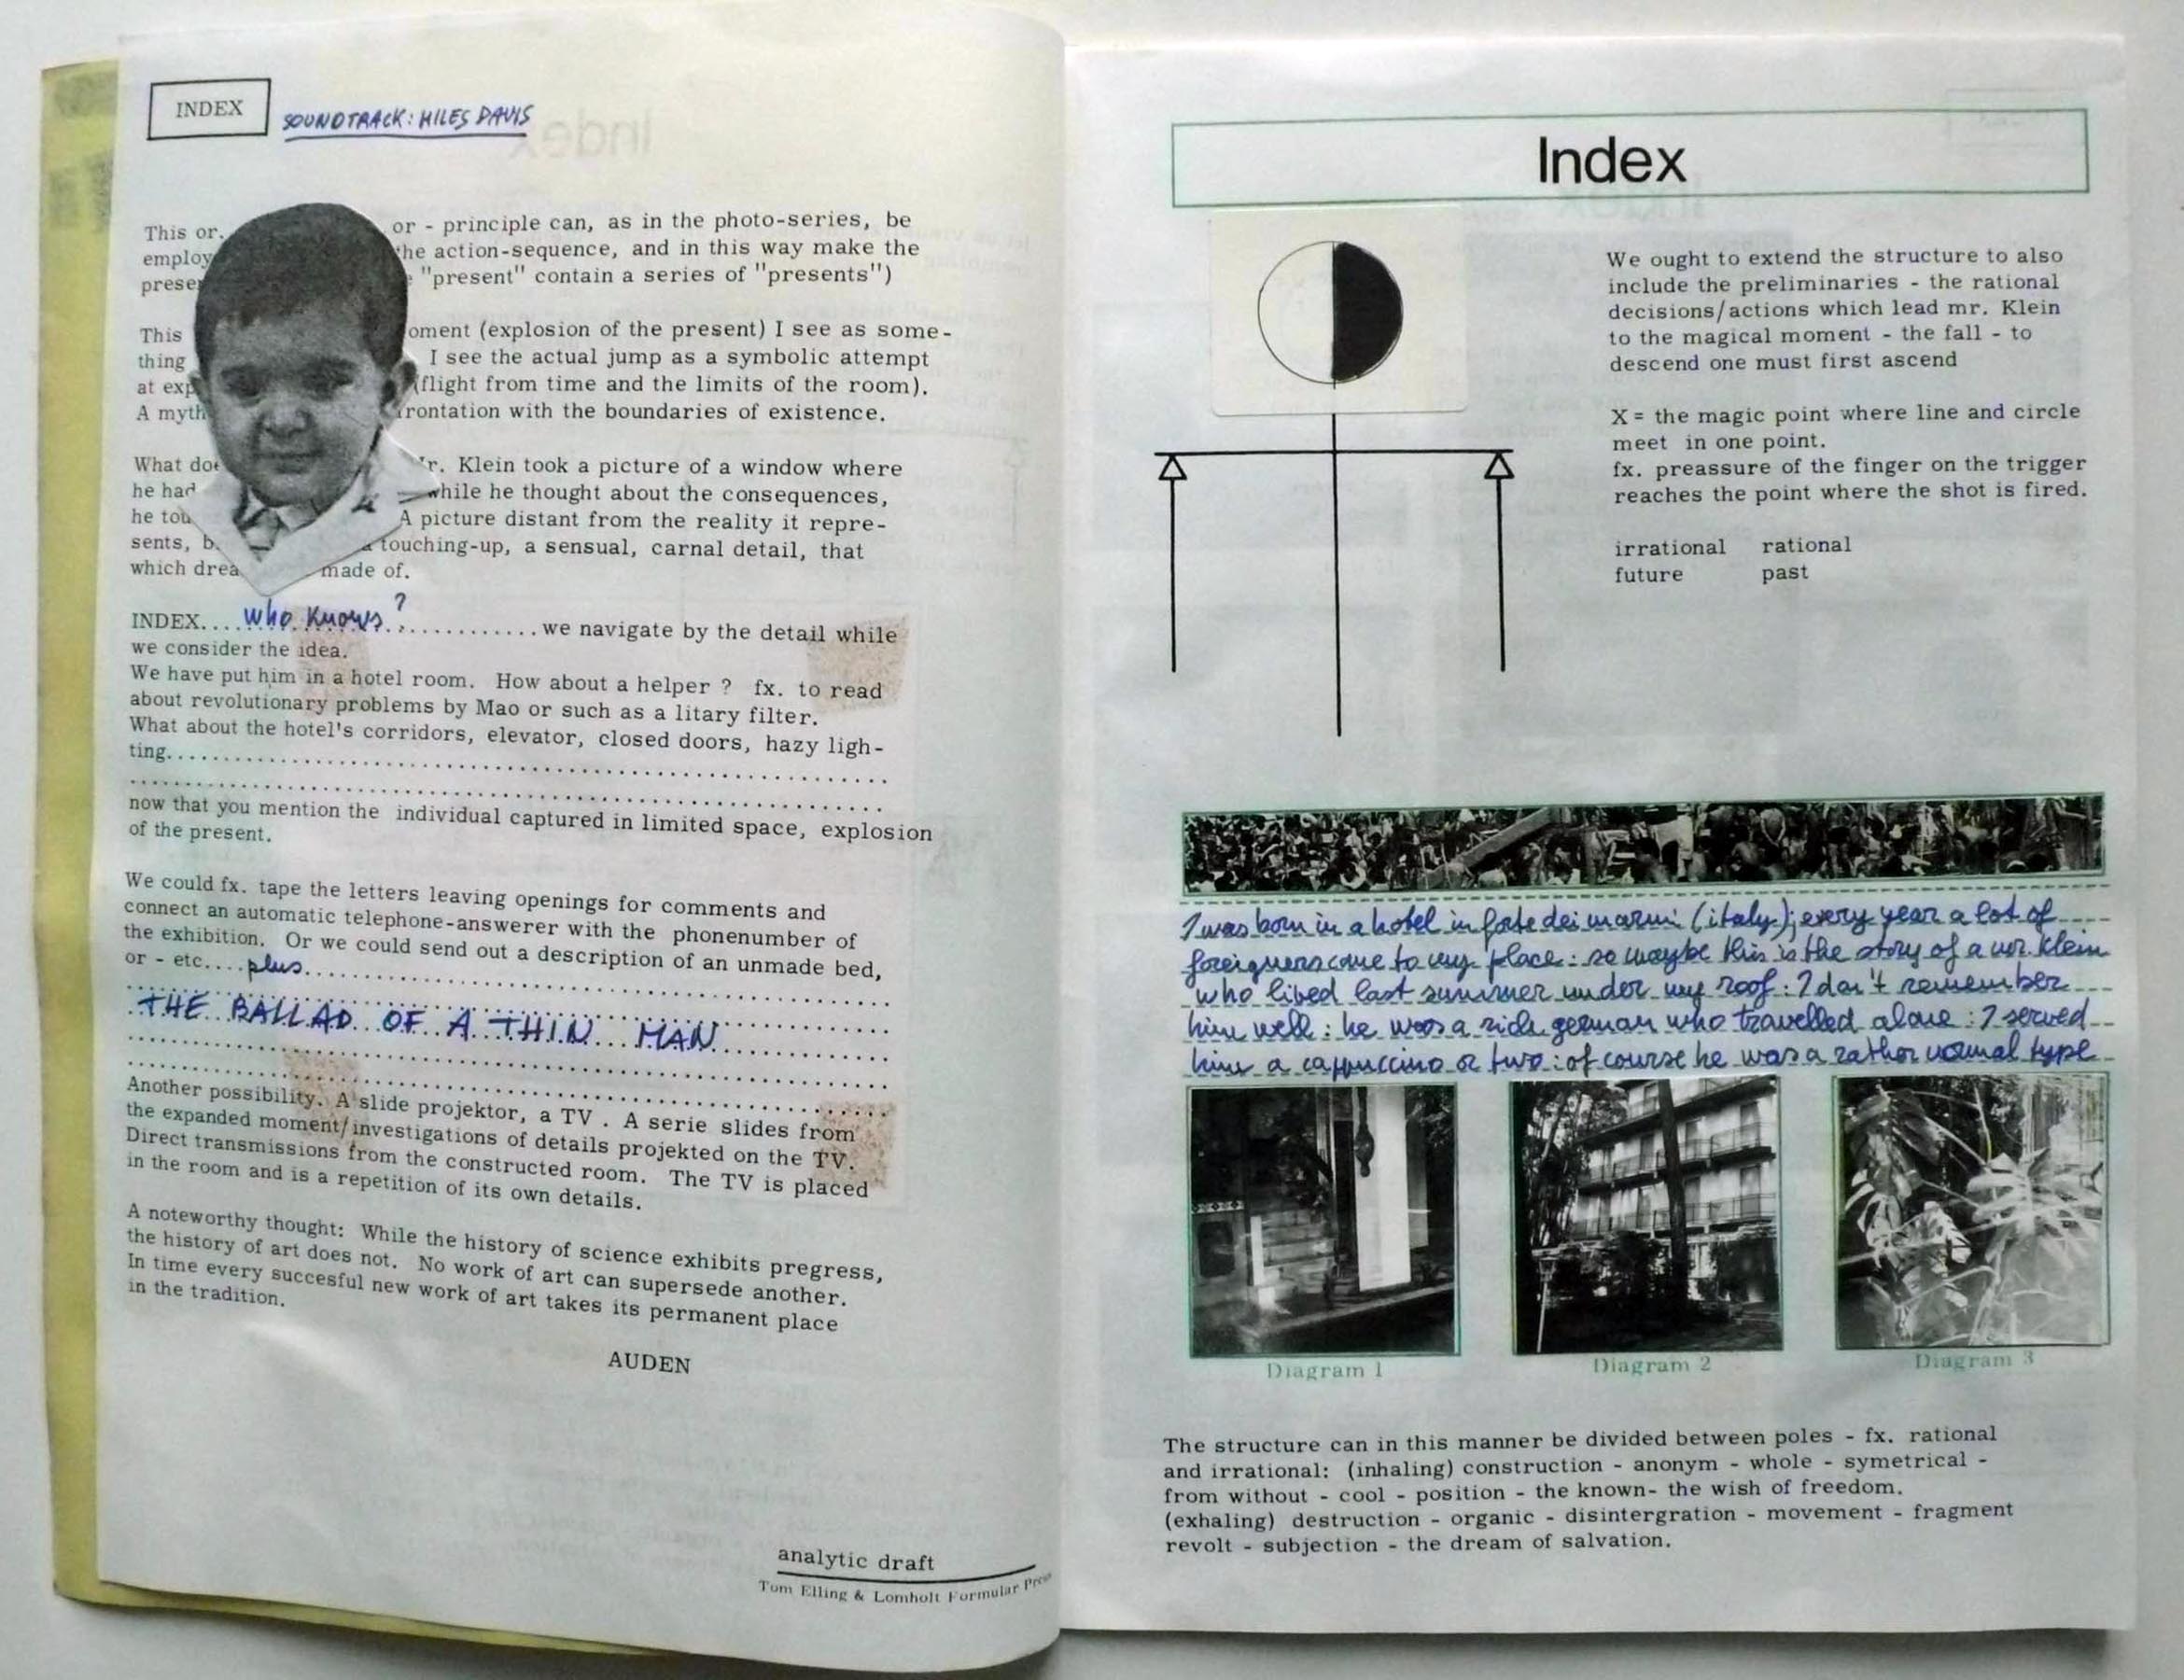 INDEX
SOUNDTRACK: MILES DAVIS
This or or - principle can, as in the photo-series, be
employ the action-sequence, and in this way make the
"present" contain a series of "presents")
This oment (explosion of the present) I see as some-
thing I see the actual jump as a symbolic attempt
at exp (flight from time and the limits of the room).
A myth rontation with the boundaries of existence.
What do r. Klein took a picture of a window where
he had while he thought about the consequences,
he tou A picture distant from the reality it repre-
sents, b touching-up, a sensual, carnal detail, that
which drea made of.
INDEX.... who knows ? ............ we navigate by the detail while
we consider the idea.
We have put him in a hotel room. How about a helper ? fx. to read
about revolutionary problems by Mao or such as a litary filter.
What about the hotel's corridors, elevator, closed doors, hazy ligh-
ting............................................................
............................................................
now that you mention the individual captured in limited space, explosion
of the present.
We could fx. tape the letters leaving openings for comments and
connect an automatic telephone-answerer with the phonenumber of
the exhibition. Or we could send out a description of an unmade bed,
or - etc.... plus............................................
THE BALLAD OF A THIN MAN
Another possibility. A slide projektor, a TV . A serie slides from
the expanded moment/investigations of details projekted on the TV.
Direct transmissions from the constructed room. The TV is placed
in the room and is a repetition of its own details.
A noteworthy thought: While the history of science exhibits pregress,
the history of art does not. No work of art can supersede another.
In time every succesful new work of art takes its permanent place
in the tradition.
AUDEN
analytic draft
Tom Elling & Lomholt Formular Press
Index
We ought to extend the structure to also
include the preliminaries - the rational
decisions/actions which lead mr. Klein
to the magical moment - the fall - to
descend one must first ascend
X = the magic point where line and circle
meet in one point.
fx. preassure of the finger on the trigger
reaches the point where the shot is fired.
irrational rational
future past
I was born in a hotel in forte dei marmi (italy); every year a lot of
foreigners come to my place: so maybe this is the story of a mr. Klein
who lived last summer under my roof: I don't remember
him well: he was a rich german who travelled alone: I served
him a cappuccino or two: of course he was a rather normal type
Diagram 1
Diagram 2
Diagram 3
The structure can in this manner be divided between poles - fx. rational
and irrational: (inhaling) construction - anonym - whole - symetrical -
from without - cool - position - the known- the wish of freedom.
(exhaling) destruction - organic - disintergration - movement - fragment
revolt - subjection - the dream of salvation.